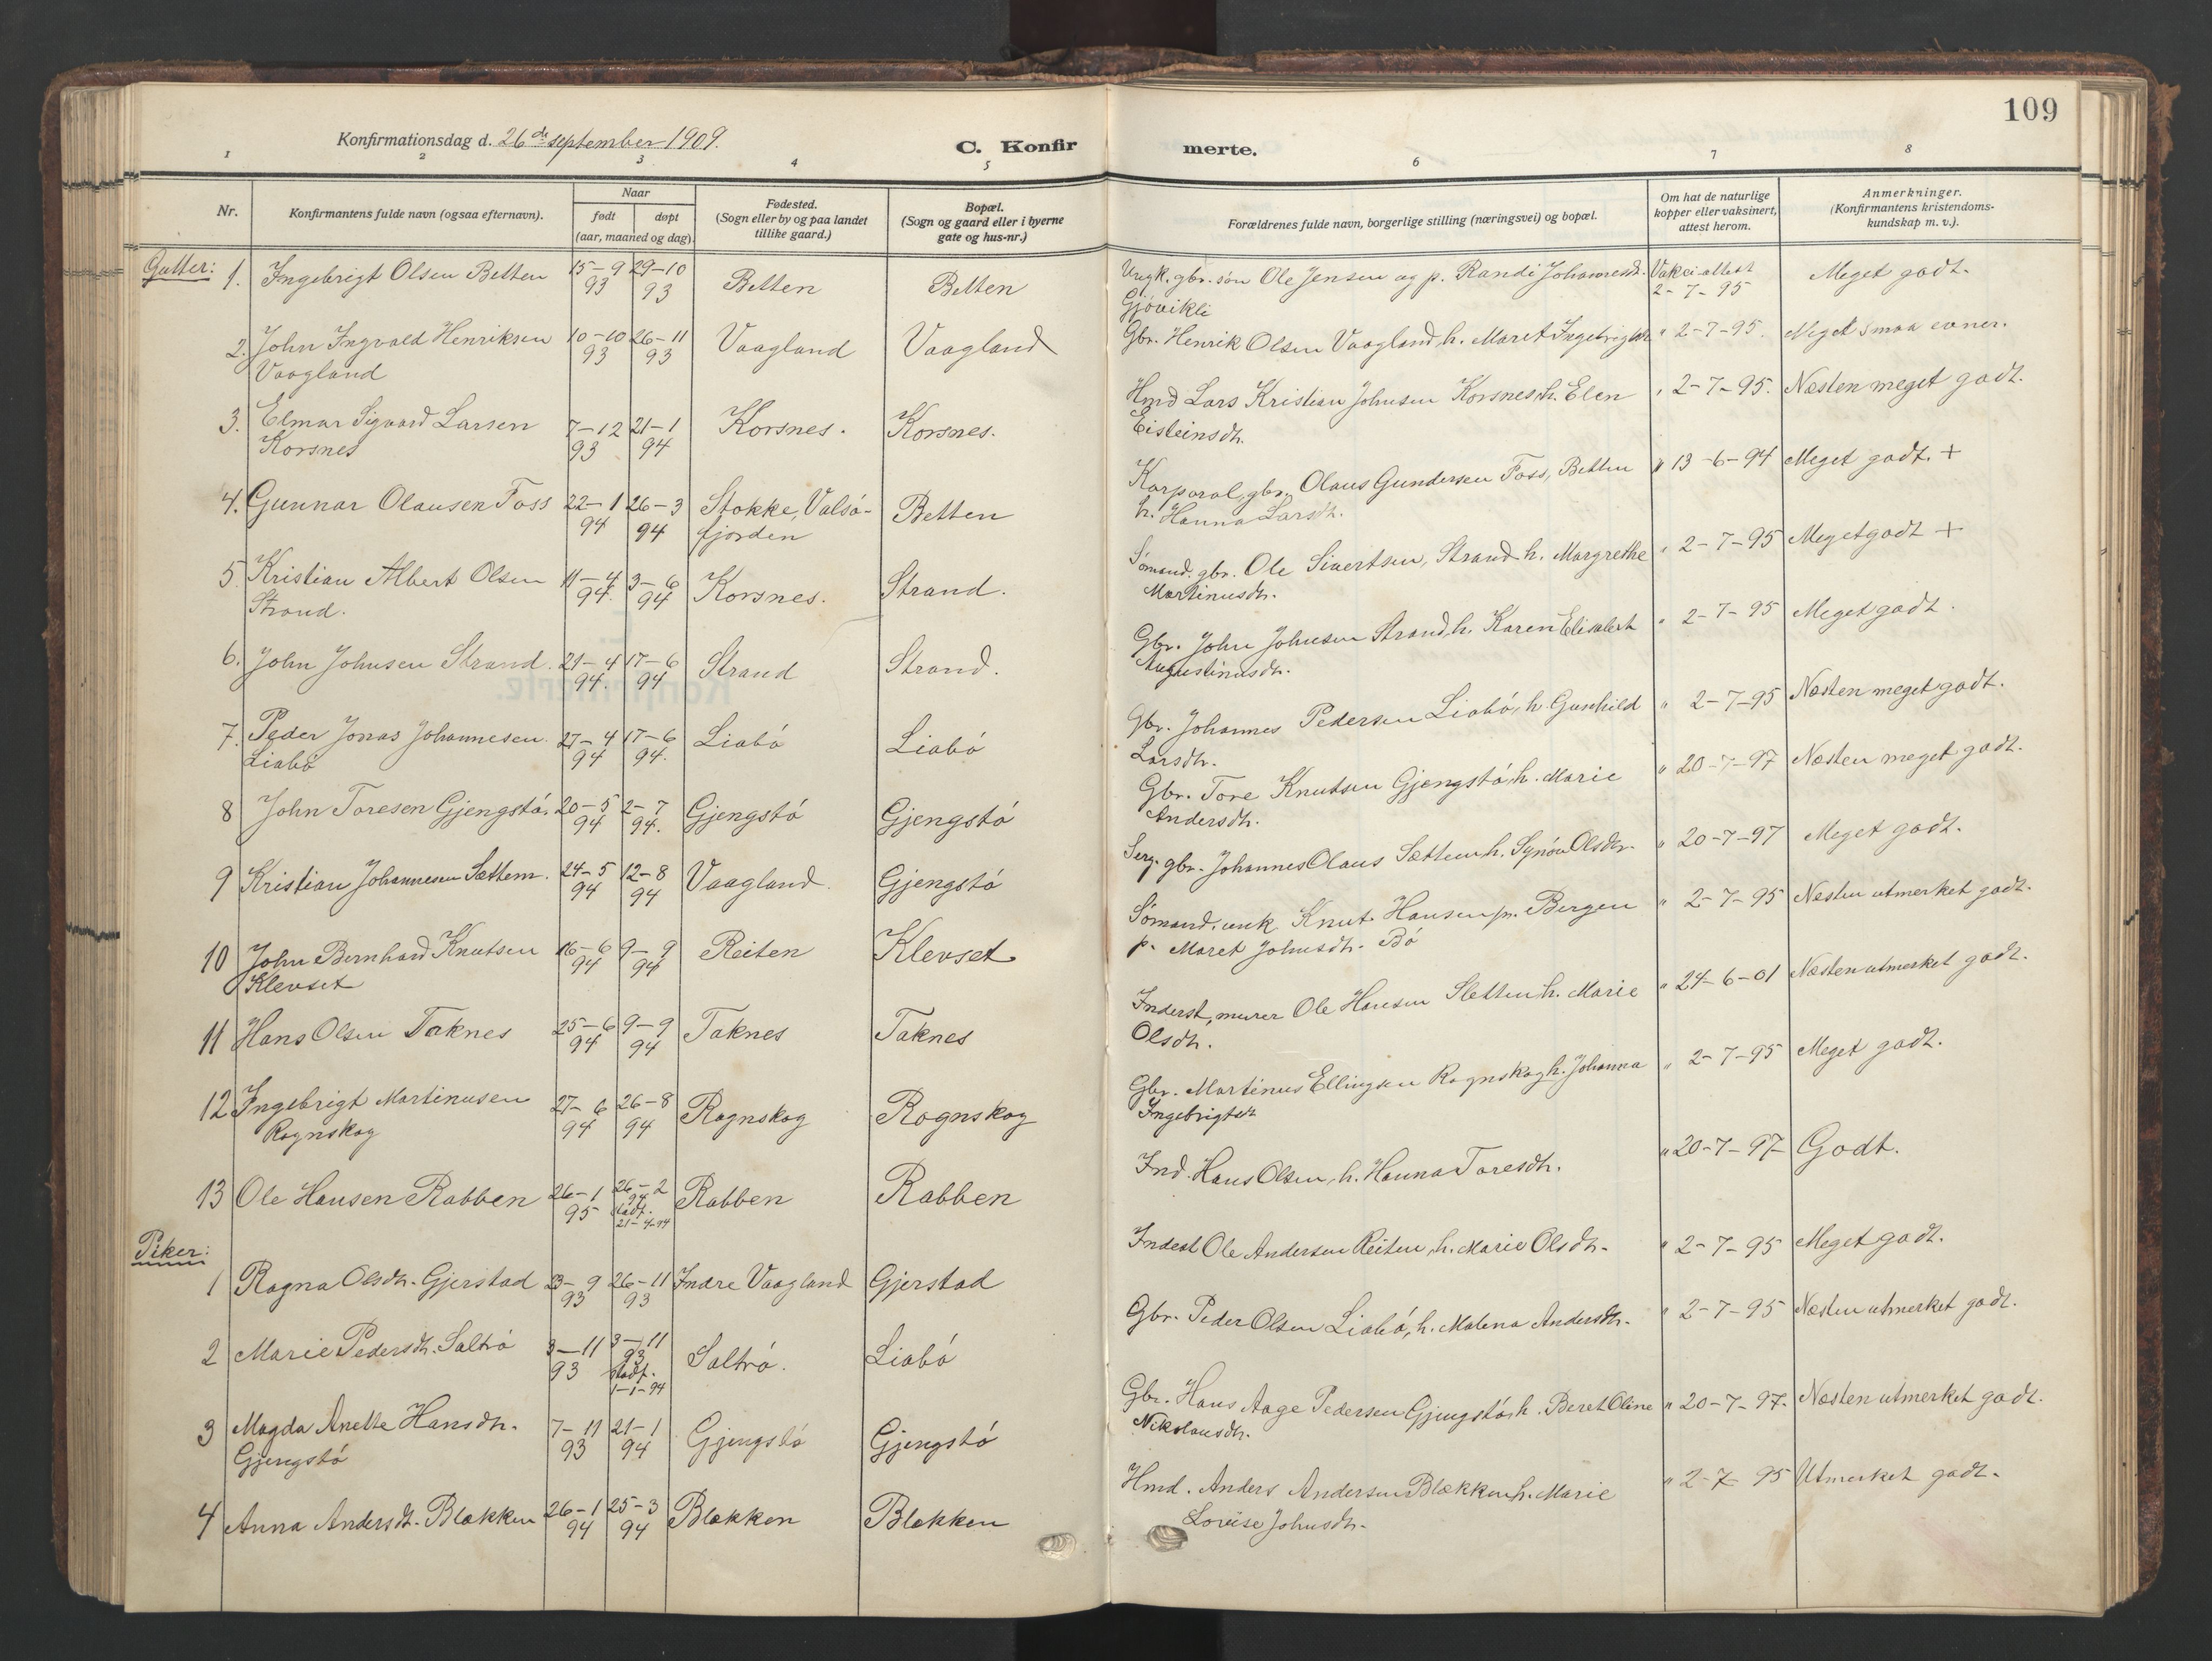 109
Konfirmationsdag d. 26de september 1909.
C. Konfirmerte.
1 2 3 4 5 6 7 8
Nr.
Konfirmantens fulde navn (ogsaa efternavn).
Naar
født døpt
(aar, maaned og dag).
Fødested.
(Sogn eller by og paa landet
tillike gaard.)
Bopæl.
(Sogn og gaard eller i byerne
gate og hus-nr.)
Forældrenes fulde navn, borgerlige stilling (næringsvei) og bopæl.
Om hat de naturlige
kopper eller vaksinert,
attest herom.
Anmerkninger.
(Konfirmantens kristendoms-
kundskap m. v.).
Gutter:
1. Ingebrigt Olsen Betten 15-9 93 29-10 93 Betten Betten Ungk. gbr. søn Ole Jensen og p. Randi Johannesdt. Vakci attest 2-7-95 Meget godt.
Gjøvikli
2. John Ingvald Henriksen 10-10 93 26-11 93 Vaagland Vaagland Gbr. Henrik Olsen Vaagland, h. Maret Ingebrigtsdt. " 2-7-95. Meget smaa evner.
Vaagland
3. Elmar Sigvard Larsen 7-12 93 21-1 94 Korsnes. Korsnes. Hmd Lars Kristian Johnsen Korsnes, h. Elen " 2-7-95. Næsten meget godt.
Korsnes Eisteinsdt.
4. Gunnar Olausen Foss 22-1 94 26-3 94 Stokke, Valsø- Betten Korporal, gbr. Olaus Gundersen Foss, Betten " 13-6-94 Meget godt. +
fjorden h. Hanna Larsdt.
5. Kristian Albert Olsen 11-4 94. 3-6 94 Korsnes. Strand. Sømand. gbr. Ole Sivertsen, Strand h. Margrethe " 2-7-95 Meget godt +
Strand. Martinusdt.
6. John Johnsen Strand. 21-4 94. 17-6 94 Strand Strand. Gbr. John Johnsen Strand, h. Karen Elisabeth " 2-7-95 Meget godt.
Augustinusdt.
7. Peder Jonas Johannesen 27-4 94 17-6 94. Liabø Liabø Gbr. Johannes Pedersen Liabø, h. Gunhild " 2-7-95 Næsten meget godt.
Liabø Larsdt.
8 John Toresen Gjengstø. 20-5 94 2-7 94. Gjengstø Gjengstø Gbr. Tore Knutsen Gjengstø, h. Marie " 20-7-97 Næsten meget godt.
Andersdt.
9 Kristian Johannesen Sættem. 24-5 94 12-8 94 Vaagland. Gjengstø Serg. gbr. Johannes Olaus Sættem h. Synøv Olsdtr. " 20-7-97 Meget godt.
10 John Bernhard Knutsen 16-6 94 9-9 94 Reiten Klevset Sømand. unk Knut Hansen pr. Bergen " 2-7-95 Næsten utmerket godt.
Klevset p. Maret Johnsdt. Bø
11 Hans Olsen Taknes 25-6 94 9-9 94 Taknes Taknes Inderst, murer Ole Hansen Sletten, h. Marie " 24-6-01 Næsten utmerket godt.
Olsdt.
12 Ingebrigt Martinusen 27-6 94 26-8 94 Rognskog Rognskog Gbr. Martinus Ellingsen Rognskog h. Johanna " 2-7-95 Meget godt.
Rognskog Ingebrigtsdt
13 Ole Hansen Rabben 26-1 95 26-2 Rabben Rabben Ind. Hans Olsen, h. Hanna Toresdt. " 20-7-97 Godt.
Piker:
1 Ragna Olsdt. Gjerstad 23-9 93 26-11 93 Indre Vaagland Gjerstad Inderst Ole Andersen Reiten, h. Marie Olsdt. " 2-7-95 Meget godt.
2 Marie Pedersdt. Saltrø 3-11 93 3-11 93 stadf. 1-1-94 Saltrø. Liabø Gbr. Peder Olsen Liabø, h. Malena Andersdt. " 2-7-95 Næsten utmerket godt.
3 Magda Anette Hansdt. 7-11 93 21-1 94 Gjengstø Gjengstø Gbr. Hans Aage Pedersen Gjengstø, h. Beret Oline " 20-7-97. Næsten utmerket godt.
Gjengstø Nikolausdt.
4 Anna Andersdt. Blækken 26-1 94 25-3 94 Blækken Blækken Hmd. Anders Andersen Blækken, h. Marie " 2-7-95 Utmerket godt.
Lovise Johnsdt.